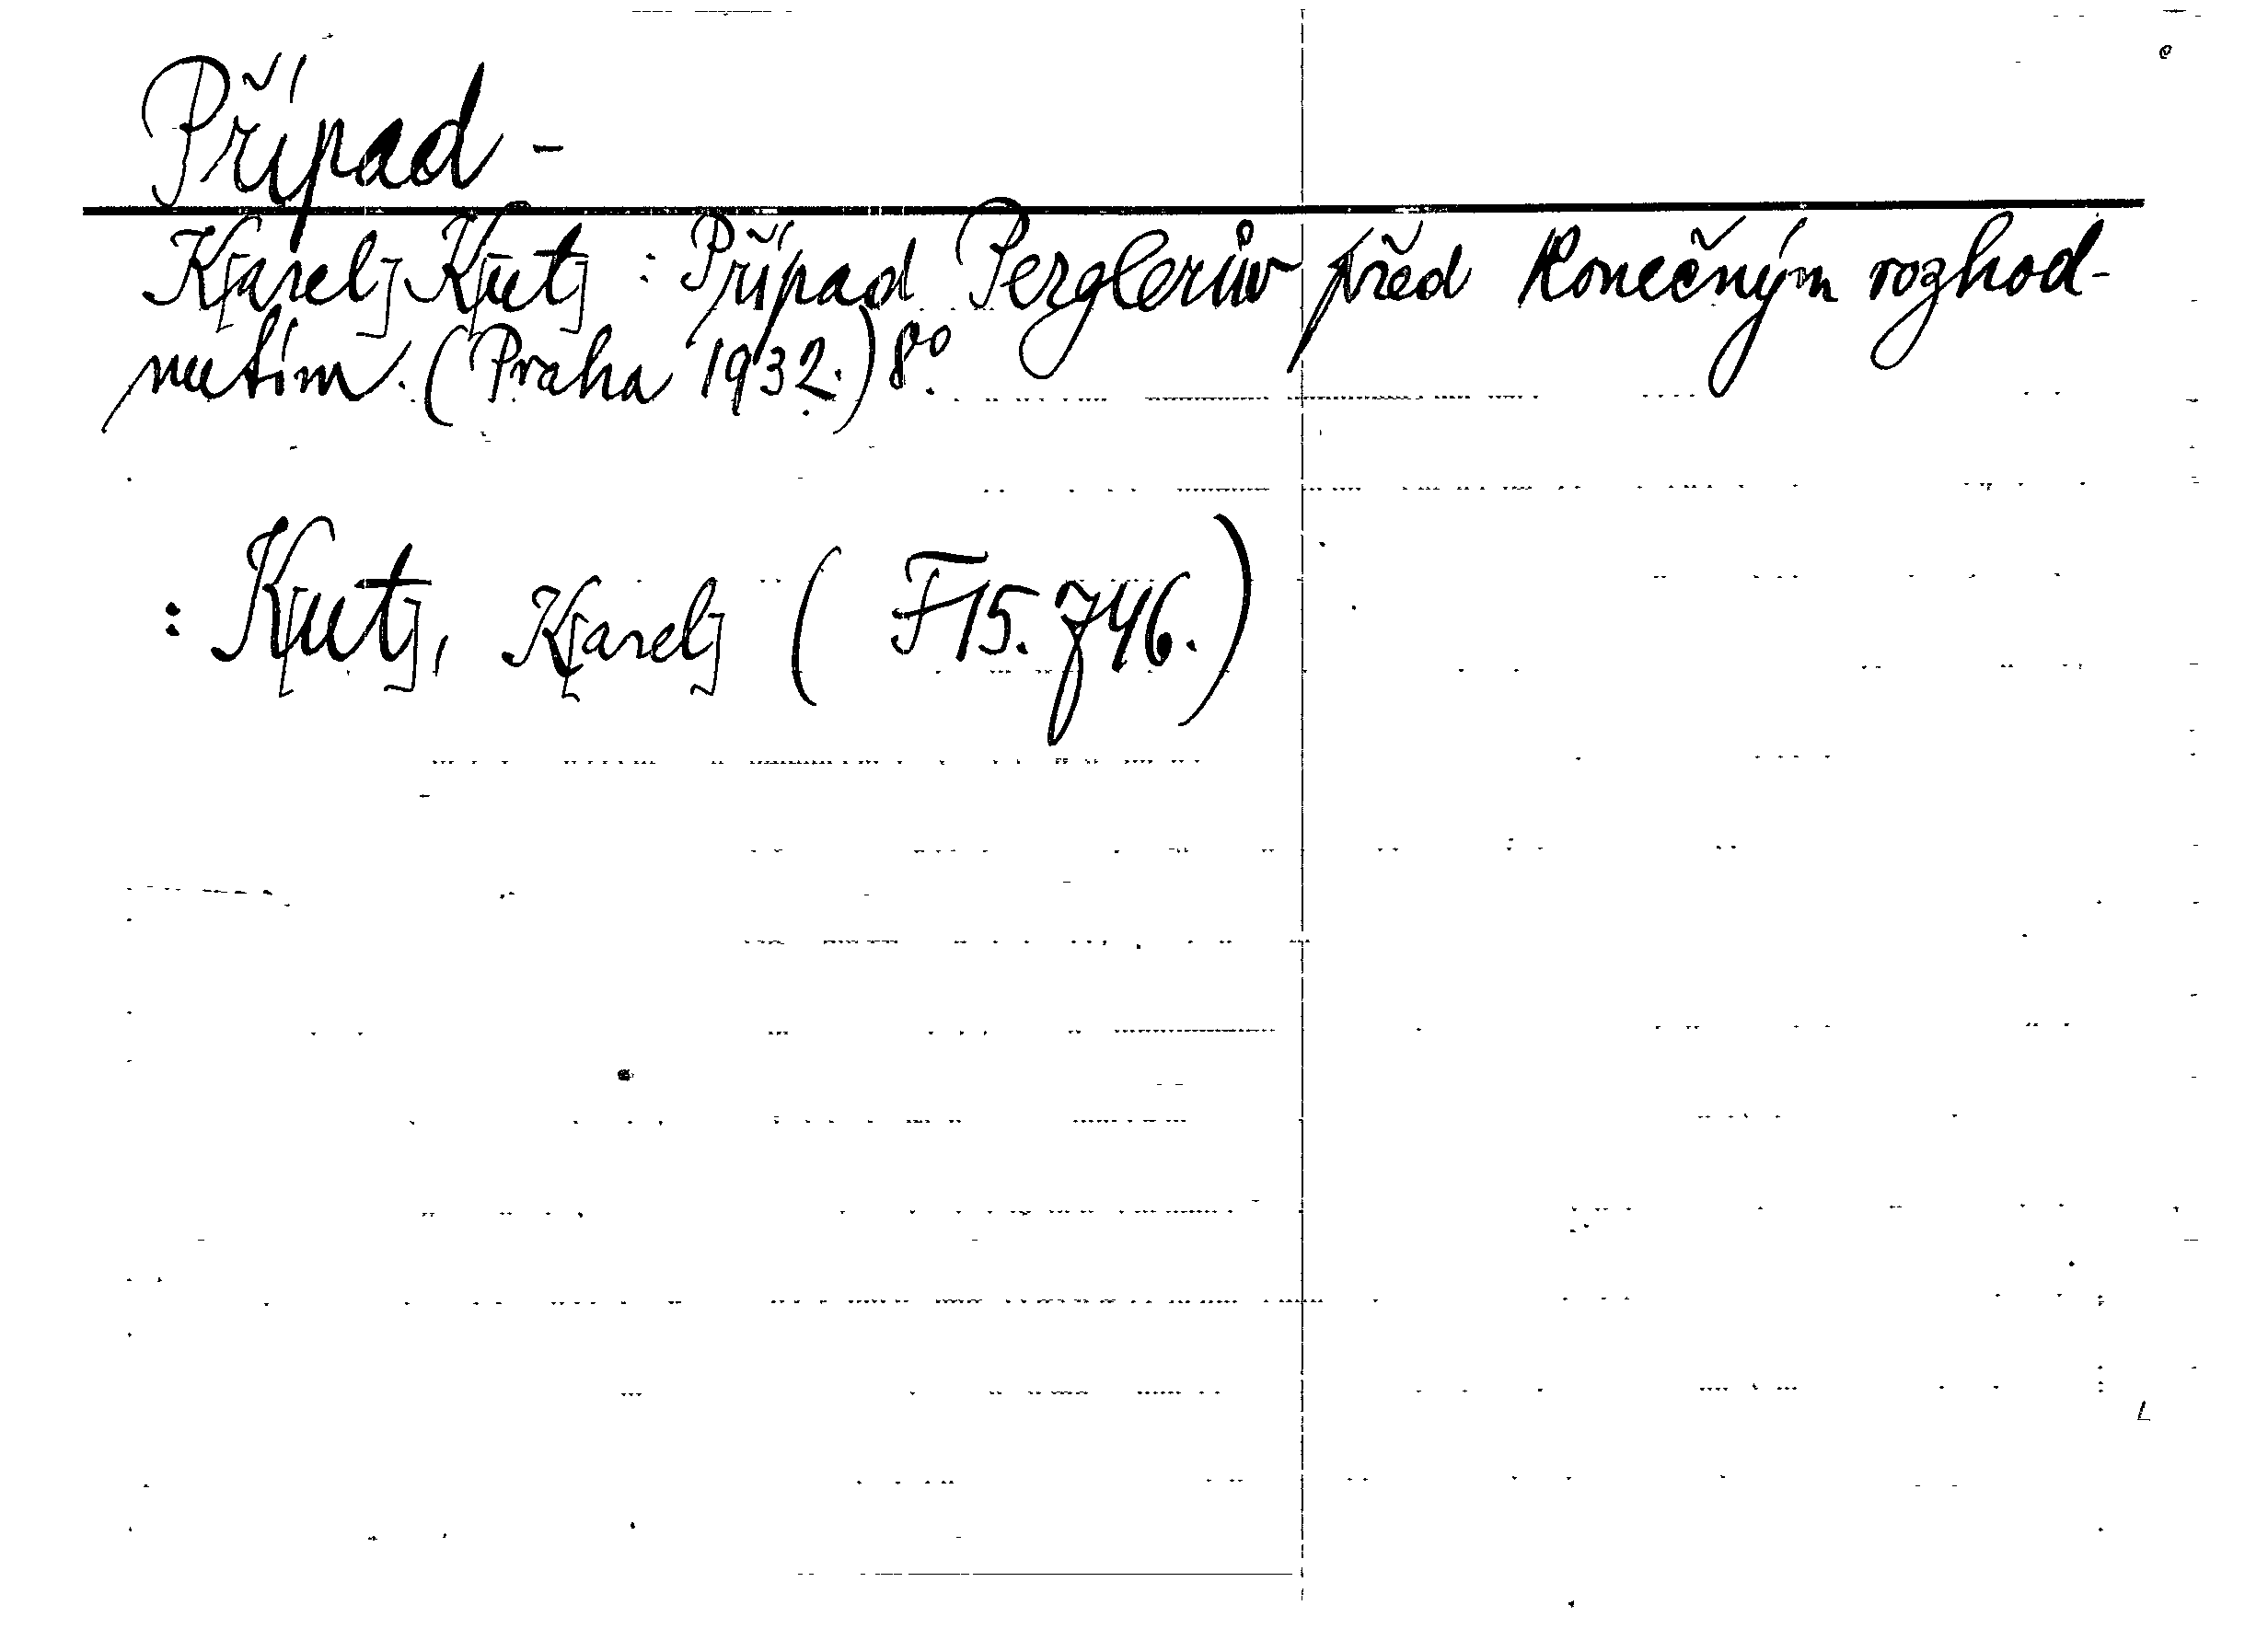 Případ -
K[arel] K[ut] : Případ Perglerův před konečným rozhod-
nutím. (Praha 1932.) 8°.
: K[ut], K[arel] ( F 15.746. )